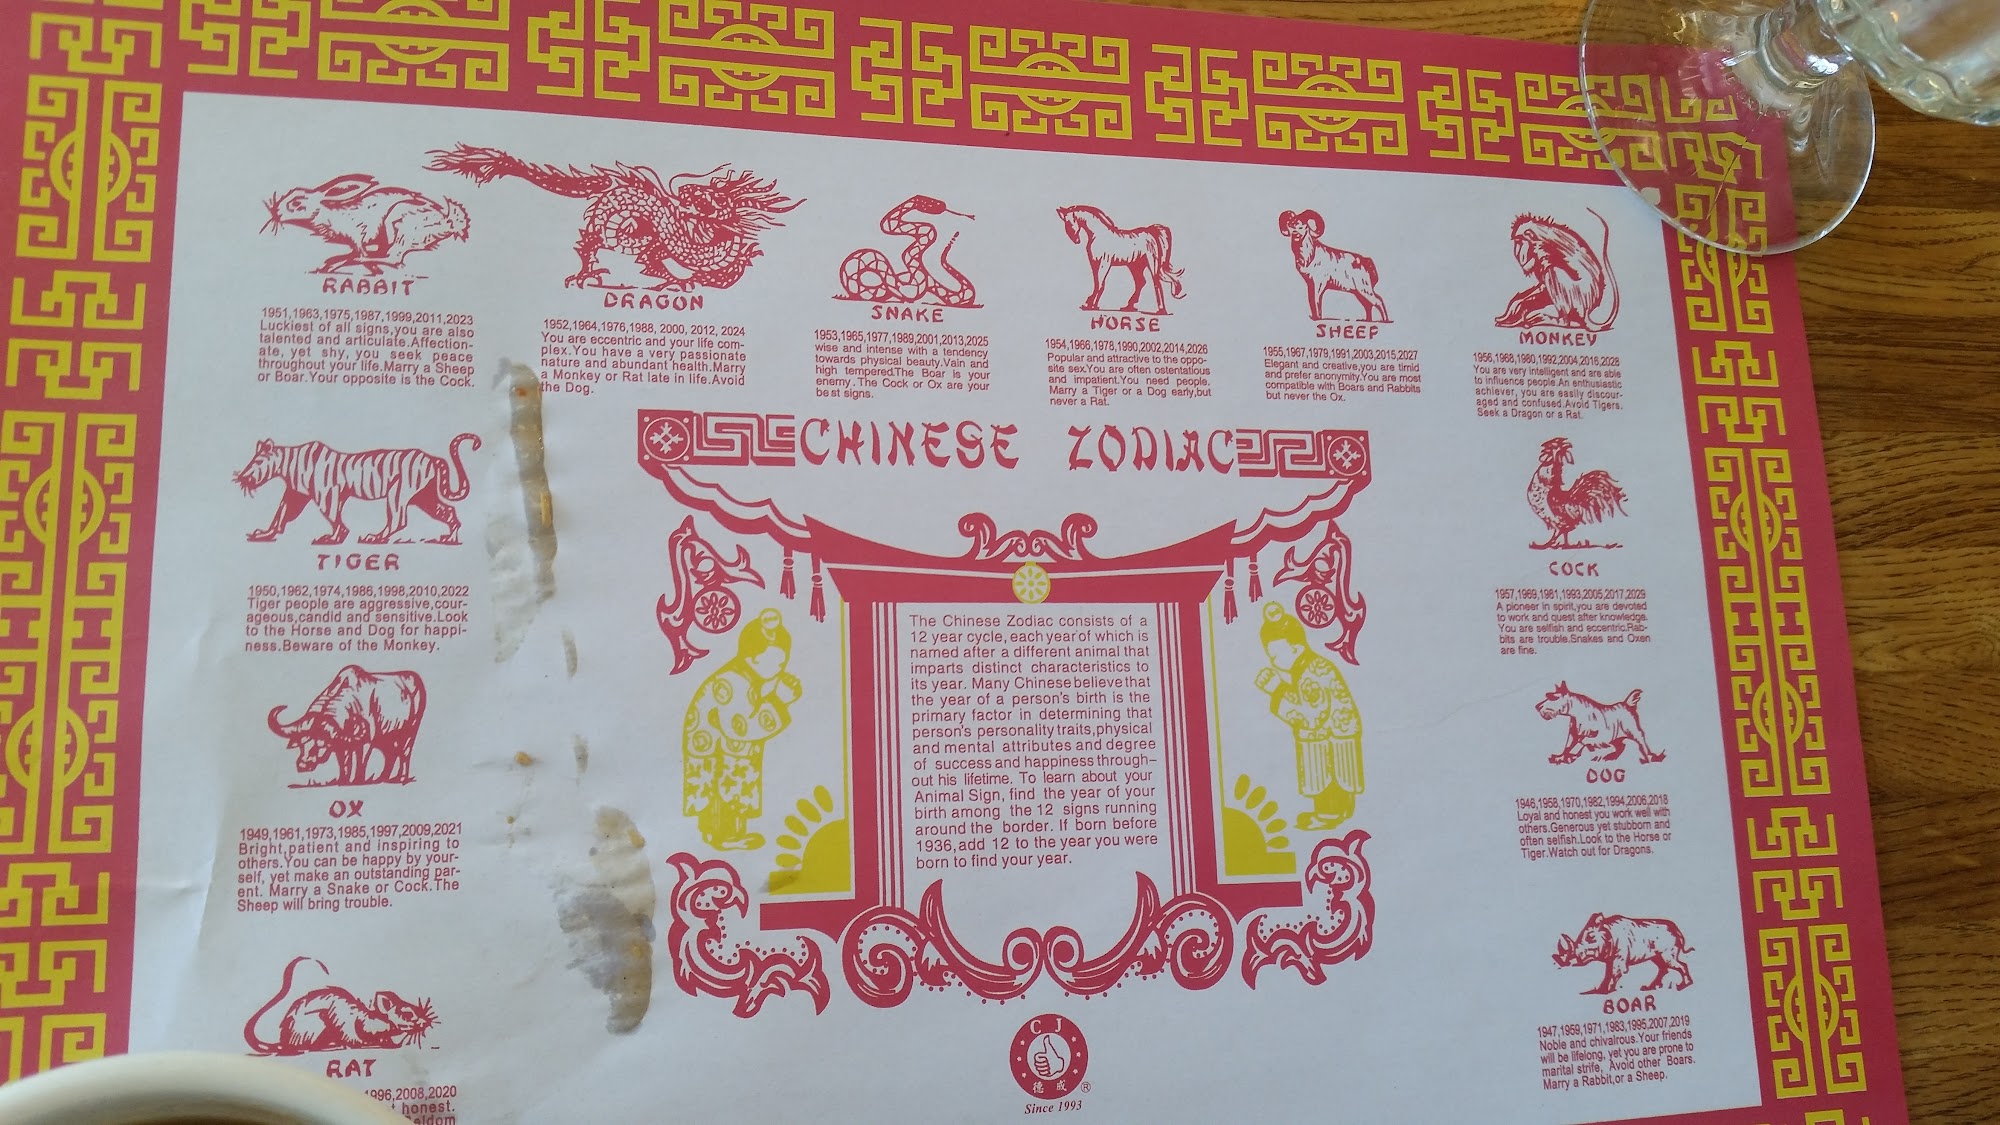 RABBIT
1951,1963,1975,1987,1999,2011,2023
Luckiest of all signs,you are also
talented and articulate.Affection-
ate, yet shy, you seek peace
throughout your life.Marry a Sheep
or Boar.Your opposite is the Cock.
DRAGON
1952,1964,1976,1988, 2000, 2012, 2024
You are eccentric and your life com-
plex.You have a very passionate
nature and abundant health.Marry
a Monkey or Rat late in life.Avoid
the Dog.
SNAKE
1953,1965,1977,1989,2001,2013,2025
wise and intense with a tendency
towards physical beauty.Vain and
high tempered.The Boar is your
enemy. The Cock or Ox are your
best signs.
HORSE
1954,1966,1978,1990,2002,2014,2026
Popular and attractive to the oppo-
site sex.You are often ostentatious
and impatient.You need people.
Marry a Tiger or a Dog early,but
never a Rat.
SHEEP
1955,1967,1979,1991,2003,2015,2027
Elegant and creative,you are timid
and prefer anonymity.You are most
compatible with Boars and Rabbits
but never the Ox.
MONKEY
1956,1968,1980,1992,2004,2016,2028
You are very intelligent and are able
to influence people.An enthusiastic
achiever, you are easily discour-
aged and confused.Avoid Tigers.
Seek a Dragon or a Rat.
TIGER
1950,1962,1974,1986,1998,2010,2022
Tiger people are aggressive,cour-
ageous,candid and sensitive.Look
to the Horse and Dog for happi-
ness.Beware of the Monkey.
CHINESE ZODIAC
COCK
1957,1969,1981,1993,2005,2017,2029
A pioneer in spirit,you are devoted
to work and quest after knowledge.
You are selfish and eccentric.Rab-
bits are trouble.Snakes and Oxen
are fine.
OX
1949,1961,1973,1985,1997,2009,2021
Bright,patient and inspiring to
others.You can be happy by your-
self, yet make an outstanding par-
ent. Marry a Snake or Cock.The
Sheep will bring trouble.
The Chinese Zodiac consists of a
12 year cycle, each year of which is
named after a different animal that
imparts distinct characteristics to
its year. Many Chinese believe that
the year of a person's birth is the
primary factor in determining that
person's personality traits,physical
and mental attributes and degree
of success and happiness through-
out his lifetime. To learn about your
Animal Sign, find the year of your
birth among the 12 signs running
around the border. If born before
1936,add 12 to the year you were
born to find your year.
DOG
1946,1958,1970,1982,1994,2006,2018
Loyal and honest you work well with
others.Generous yet stubborn and
often selfish.Look to the Horse or
Tiger.Watch out for Dragons.
RAT
1996,2008,2020
honest.
Seldom
BOAR
1947,1959,1971,1983,1995,2007,2019
Noble and chivalrous.Your friends
will be lifelong, yet you are prone to
marital strife, Avoid other Boars.
Marry a Rabbit,or a Sheep.
CJ
德威
®
Since 1993